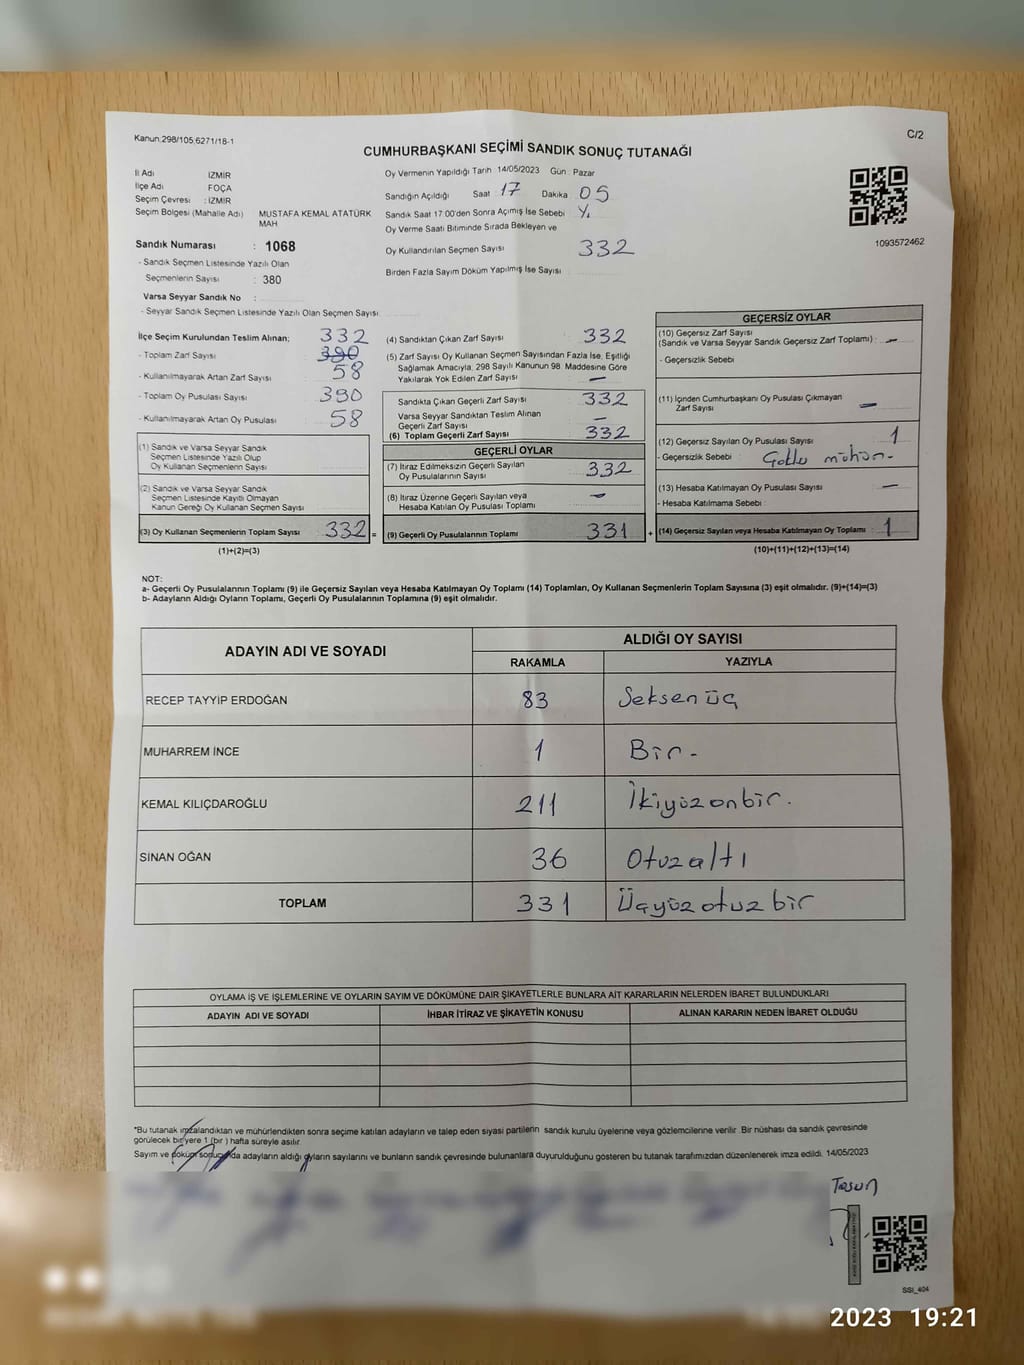 Kanun:298/105;6271/18-1
C/2
CUMHURBAŞKANI SEÇİMİ SANDIK SONUÇ TUTANAĞI
İl Adı İZMİR
İlçe Adı FOÇA
Seçim Çevresi : İZMİR
Seçim Bölgesi (Mahalle Adı) MUSTAFA KEMAL ATATÜRK
MAH
Sandık Numarası : 1068
- Sandık Seçmen Listesinde Yazılı Olan
Seçmenlerin Sayısı : 380
Varsa Seyyar Sandık No :
- Seyyar Sandık Seçmen Listesinde Yazılı Olan Seçmen Sayısı:
Oy Vermenin Yapıldığı Tarih 14/05/2023 Gün : Pazar
Sandığın Açıldığı Saat : 17 Dakika : 05
Sandık Saat 17:00'den Sonra Açımış İse Sebebi
Oy Verme Saati Bitiminde Sırada Bekleyen ve
Oy Kullandırılan Seçmen Sayısı 332
Birden Fazla Sayım Döküm Yapılmış İse Sayısı :
1093572462
İlçe Seçim Kurulundan Teslim Alınan; 332
- Toplam Zarf Sayısı 390
- Kullanılmayarak Artan Zarf Sayısı 58
- Toplam Oy Pusulası Sayısı 390
- Kullanılmayarak Artan Oy Pusulası 58
(1) Sandık ve Varsa Seyyar Sandık
Seçmen Listesinde Yazılı Olup
Oy Kullanan Seçmenlerin Sayısı
(2) Sandık ve Varsa Seyyar Sandık
Seçmen Listesinde Kayıtlı Olmayan
Kanun Gereği Oy Kullanan Seçmen Sayısı
(3) Oy Kullanan Seçmenlerin Toplam Sayısı 332 =
(1)+(2)=(3)
(4) Sandıktan Çıkan Zarf Sayısı : 332
(5) Zarf Sayısı Oy Kullanan Seçmen Sayısından Fazla İse, Eşitliği
Sağlamak Amacıyla; 298 Sayılı Kanunun 98. Maddesine Göre
Yakılarak Yok Edilen Zarf Sayısı : —
Sandıkta Çıkan Geçerli Zarf Sayısı : 332
Varsa Seyyar Sandıktan Teslim Alınan
Geçerli Zarf Sayısı : —
(6) Toplam Geçerli Zarf Sayısı : 332
GEÇERLİ OYLAR
(7) İtiraz Edilmeksizin Geçerli Sayılan
Oy Pusulalarının Sayısı : 332
(8) İtiraz Üzerine Geçerli Sayılan veya
Hesaba Katılan Oy Pusulası Toplamı : —
(9) Geçerli Oy Pusulalarının Toplamı : 331 +
GEÇERSİZ OYLAR
(10) Geçersiz Zarf Sayısı
(Sandık ve Varsa Seyyar Sandık Geçersiz Zarf Toplamı) : —
- Geçersizlik Sebebi
(11) İçinden Cumhurbaşkanı Oy Pusulası Çıkmayan
Zarf Sayısı : —
(12) Geçersiz Sayılan Oy Pusulası Sayısı : 1
- Geçersizlik Sebebi : Çoklu mühür-
(13) Hesaba Katılmayan Oy Pusulası Sayısı : —
- Hesaba Katılmama Sebebi :
(14) Geçersiz Sayılan veya Hesaba Katılmayan Oy Toplamı : 1
(10)+(11)+(12)+(13)=(14)
NOT:
a- Geçerli Oy Pusulalarının Toplamı (9) ile Geçersiz Sayılan veya Hesaba Katılmayan Oy Toplamı (14) Toplamları, Oy Kullanan Seçmenlerin Toplam Sayısına (3) eşit olmalıdır. (9)+(14)=(3)
b- Adayların Aldığı Oyların Toplamı, Geçerli Oy Pusulalarının Toplamına (9) eşit olmalıdır.
ADAYIN ADI VE SOYADI ALDIĞI OY SAYISI
RAKAMLA YAZIYLA
RECEP TAYYİP ERDOĞAN 83 Seksenüç
MUHARREM İNCE 1 Bir-
KEMAL KILIÇDAROĞLU 211 İkiyüzonbir.
SİNAN OĞAN 36 Otuzaltı
TOPLAM 331 Üçyüzotuzbir
OYLAMA İŞ VE İŞLEMLERİNE VE OYLARIN SAYIM VE DÖKÜMÜNE DAİR ŞİKAYETLERLE BUNLARA AİT KARARLARIN NELERDEN İBARET BULUNDUKLARI
ADAYIN ADI VE SOYADI İHBAR İTİRAZ VE ŞİKAYETİN KONUSU ALINAN KARARIN NEDEN İBARET OLDUĞU
*Bu tutanak imzalandıktan ve mühürlendikten sonra seçime katılan adayların ve talep eden siyasi partilerin sandık kurulu üyelerine veya gözlemcilerine verilir. Bir nüshası da sandık çevresinde
görülecek bir yere 1 (bir) hafta süreyle asılır.
Sayım ve döküm sonucunda adayların aldığı oyların sayılarını ve bunların sandık çevresinde bulunanlara duyurulduğunu gösteren bu tutanak tarafımızdan düzenlenerek imza edildi. 14/05/2023
Tosun
SSI_404
2023 19:21